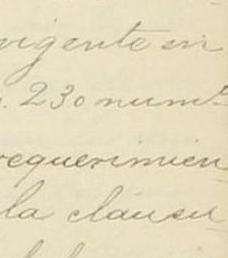 vigente en
230 num
requerimien
la clausu